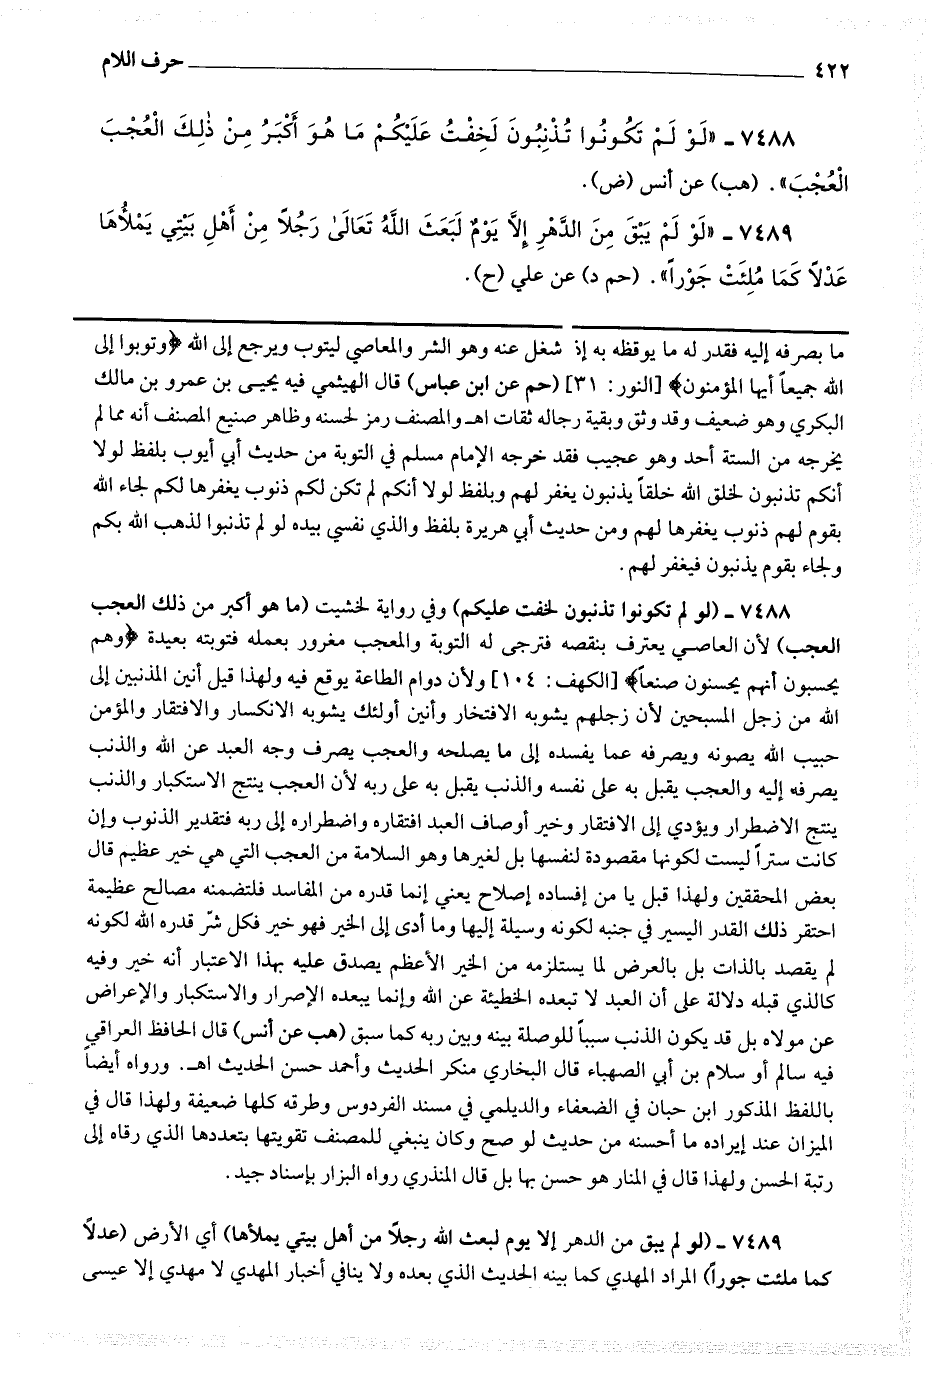 ٤٢٢ حرف اللام
٧٤٨٨ ـ «لَوْ لَمْ تَكُونُوا تُذْنِبُونَ لَخِفْتُ عَلَيْكُمْ مَا هُوَ أَكْبَرُ مِنْ ذٰلِكَ الْعُجْبَ
الْعُجْبَ». (هب) عن أنس (ض).
٧٤٨٩ ـ «لَوْ لَمْ يَبْقَ مِنَ الدَّهْرِ إِلَّا يَوْمٌ لَبَعَثَ اللَّهُ تَعَالَىٰ رَجُلاً مِنْ أَهْلِ بَيْتِي يَمْلَأُهَا
عَدْلاً كَمَا مُلِئَتْ جَوْراً». (حم د) عن علي (ح).
ما بصرفه إليه فقدر له ما يوقظه به إذ شغل عنه وهو الشر والمعاصي ليتوب ويرجع إلى الله ﴿وتوبوا إلى
الله جميعاً أيها المؤمنون﴾ [النور: ٣١] (حم عن ابن عباس) قال الهيثمي فيه يحيى بن عمرو بن مالك
البكري وهو ضعيف وقد وثق وبقية رجاله ثقات اهـ والمصنف رمز لحسنه وظاهر صنيع المصنف أنه مما لم
يخرجه من الستة أحد وهو عجيب فقد خرجه الإمام مسلم في التوبة من حديث أبي أيوب بلفظ لولا
أنكم تذنبون لخلق الله خلقاً يذنبون يغفر لهم وبلفظ لولا أنكم لم تكن لكم ذنوب يغفرها لكم لجاء الله
بقوم لهم ذنوب يغفرها لهم ومن حديث أبي هريرة بلفظ والذي نفسي بيده لو لم تذنبوا لذهب الله بكم
ولجاء بقوم يذنبون فيغفر لهم.
٧٤٨٨ ـ (لو لم تكونوا تذنبون لخفت عليكم) وفي رواية لخشيت (ما هو أكبر من ذلك العجب
العجب) لأن العاصي يعترف بنقصه فترجى له التوبة والمعجب مغرور بعمله فتوبته بعيدة ﴿وهم
يحسبون أنهم يحسنون صنعاً﴾ [الكهف: ١٠٤] ولأن دوام الطاعة يوقع فيه ولهذا قيل أنين المذنبين إلى
الله من زجل المسبحين لأن زجلهم يشوبه الافتخار وأنين أولئك يشوبه الانكسار والافتقار والمؤمن
حبيب الله يصونه ويصرفه عما يفسده إلى ما يصلحه والعجب يصرف وجه العبد عن الله والذنب
يصرفه إليه والعجب يقبل به على نفسه والذنب يقبل به على ربه لأن العجب ينتج الاستكبار والذنب
ينتج الاضطرار ويؤدي إلى الافتقار وخير أوصاف العبد افتقاره واضطراره إلى ربه فتقدير الذنوب وإن
كانت ستراً ليست لكونها مقصودة لنفسها بل لغيرها وهو السلامة من العجب التي هي خير عظيم قال
بعض المحققين ولهذا قيل يا من إفساده إصلاح يعني إنما قدره من المفاسد فلتضمنه مصالح عظيمة
احتقر ذلك القدر اليسير في جنبه لكونه وسيلة إليها وما أدى إلى الخير فهو خير فكل شرّ قدره الله لكونه
لم يقصد بالذات بل بالعرض لما يستلزمه من الخير الأعظم يصدق عليه بهذا الاعتبار أنه خير وفيه
كالذي قبله دلالة على أن العبد لا تبعده الخطيئة عن الله وإنما يبعده الإصرار والاستكبار والإعراض
عن مولاه بل قد يكون الذنب سبباً للوصلة بينه وبين ربه كما سبق (هب عن أنس) قال الحافظ العراقي
فيه سالم أو سلام بن أبي الصهباء قال البخاري منكر الحديث وأحمد حسن الحديث اهـ. ورواه أيضاً
باللفظ المذكور ابن حبان في الضعفاء والديلمي في مسند الفردوس وطرقه كلها ضعيفة ولهذا قال في
الميزان عند إيراده ما أحسنه من حديث لو صح وكان ينبغي للمصنف تقويتها بتعددها الذي رقاه إلى
رتبة الحسن ولهذا قال في المنار هو حسن بها بل قال المنذري رواه البزار بإسناد جيد.
٧٤٨٩ ـ (لو لم يبق من الدهر إلا يوم لبعث الله رجلاً من أهل بيتي يملأها) أي الأرض (عدلاً
كما ملئت جوراً) المراد المهدي كما بينه الحديث الذي بعده ولا ينافي أخبار المهدي لا مهدي إلا عيسى